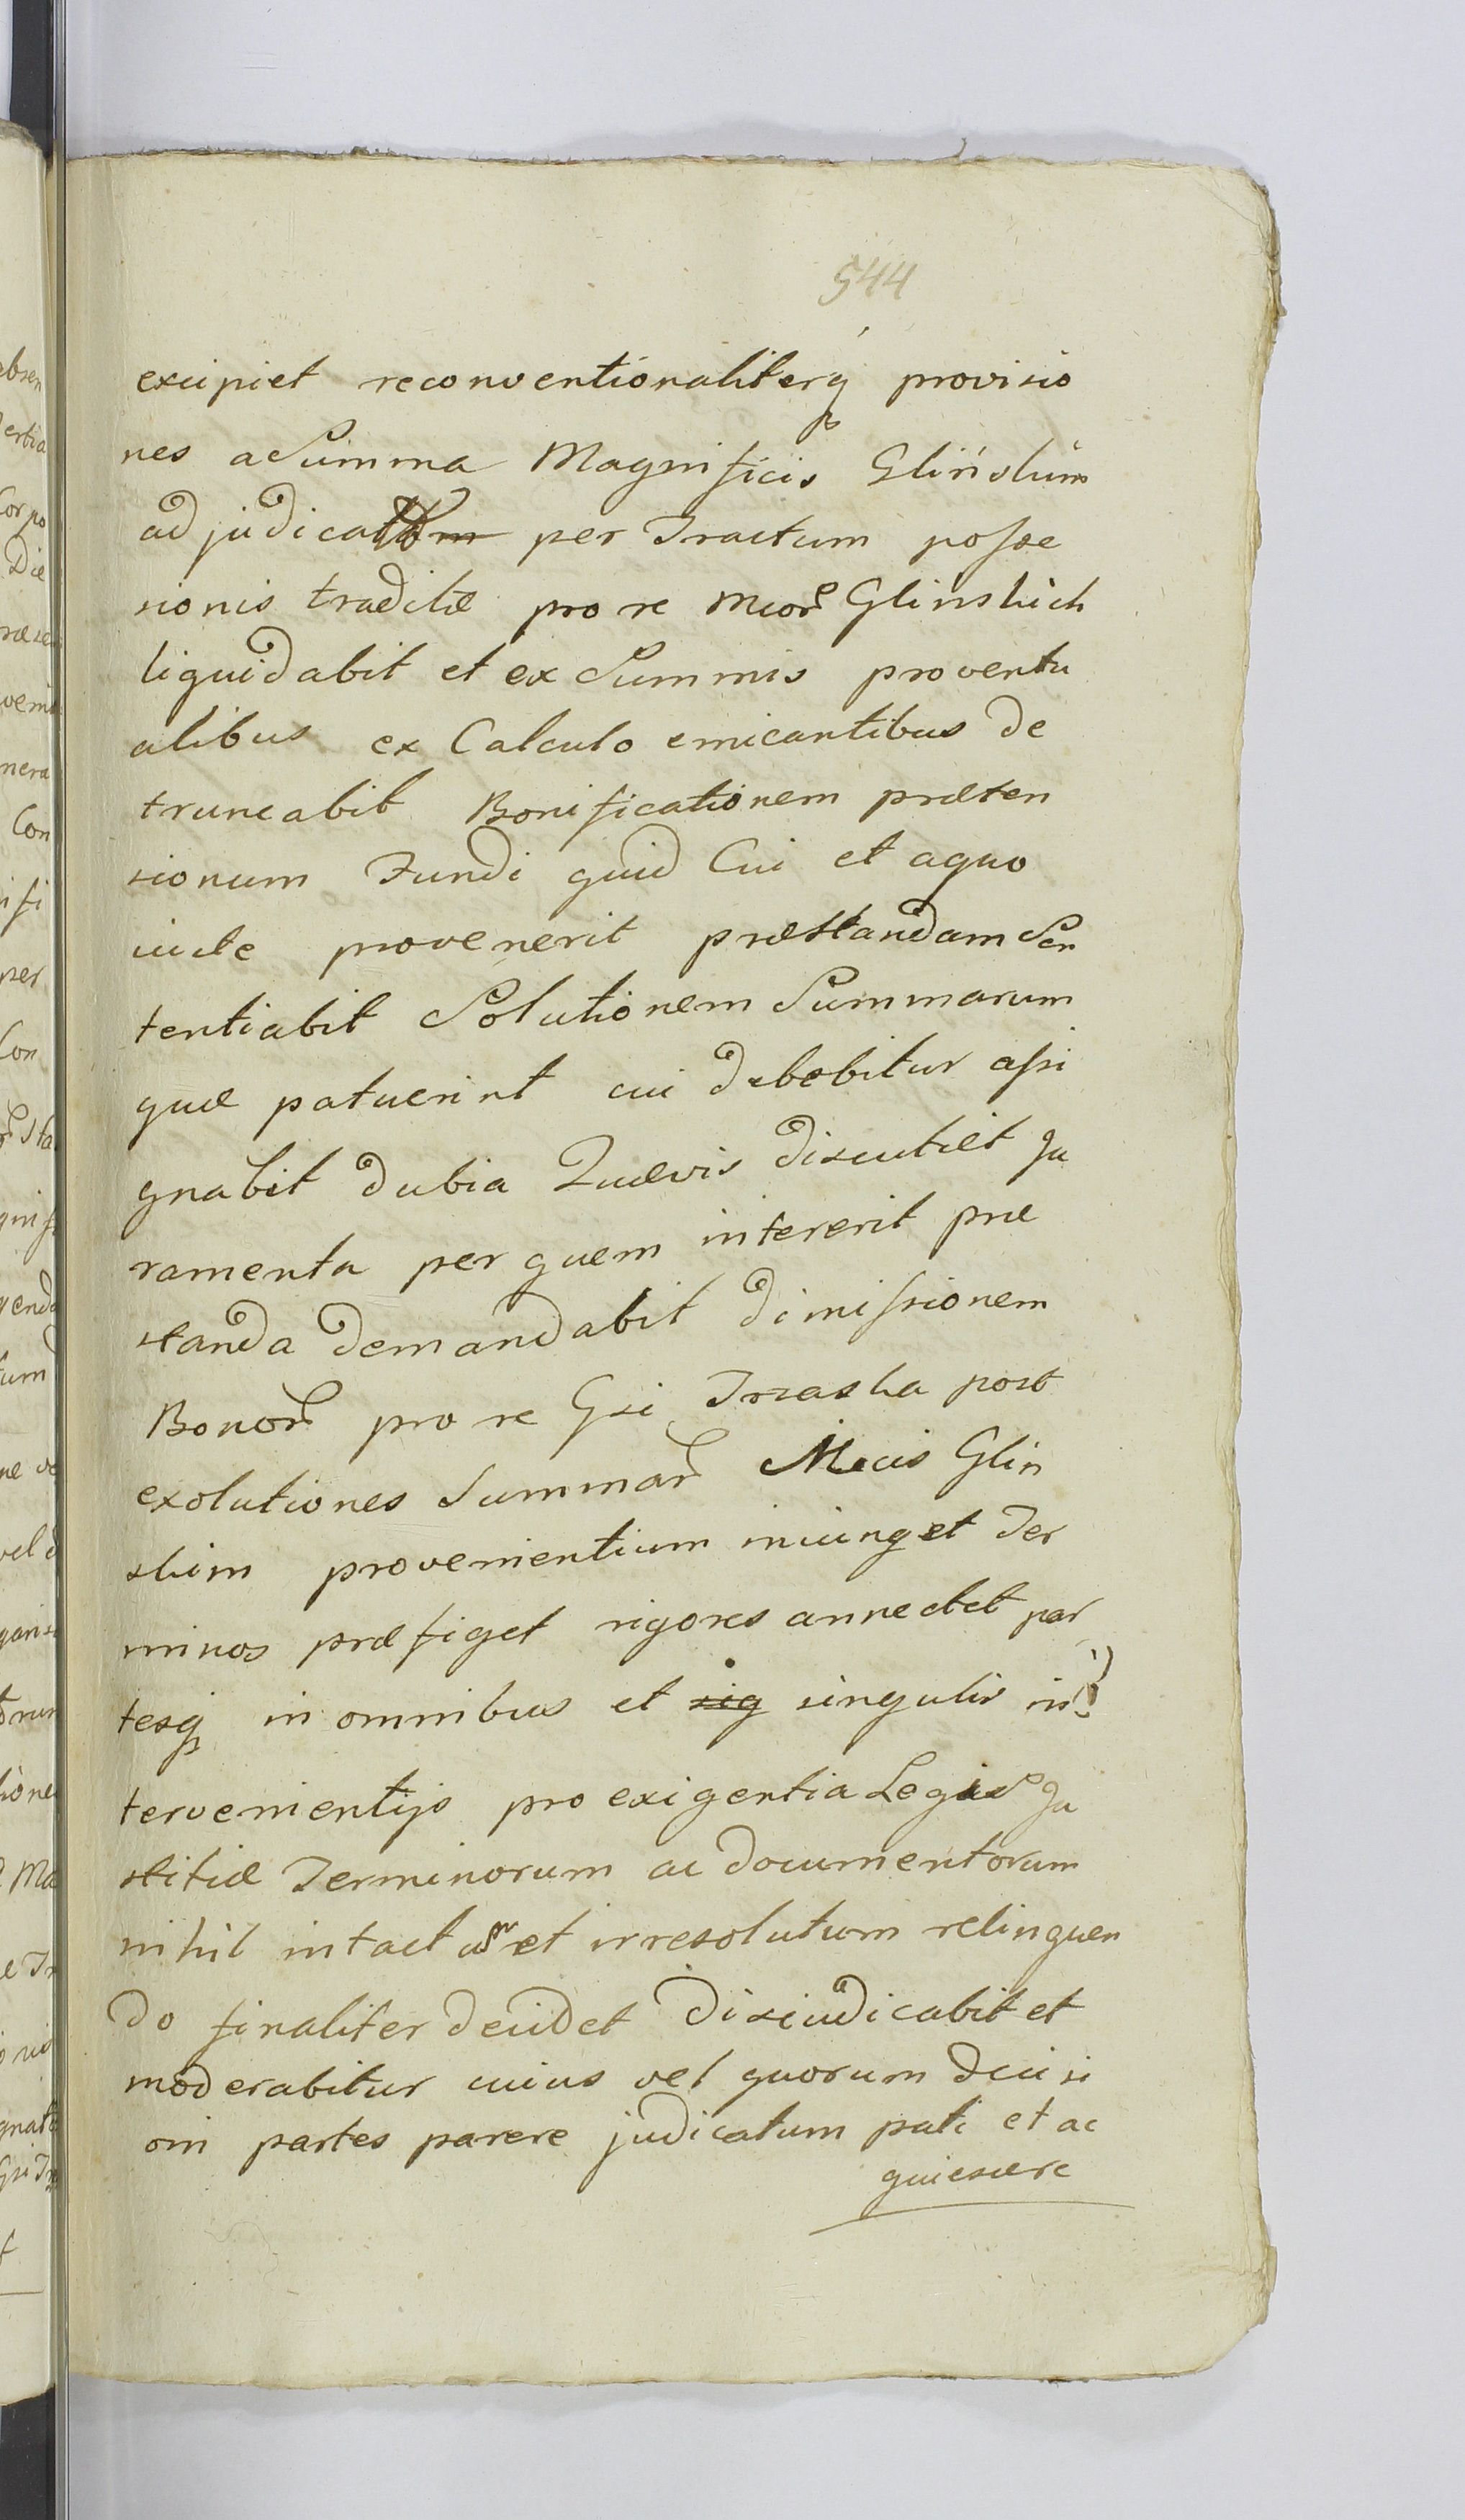 544
excipiet reconventionaliterq provisio
nes a Summa Magnificis Glińskim
adjudicata per Tractum posse
sionis traditæ pro re Mcor Glinskich
liquidabit et ex Summis proventu
alibus ex Calculo emicantibus de
truncabit Bonificationem præten
sionum Fundi quid Cui et aquo
iuste provenerit præstandam Sen
tentiabit Solutionem Summarum
quæ patuerint cui debebitur assi
gnabit dubia Quævis discutiet Ju
ramenta per quem intererit præ
standa demandabit dimissionem
Bonor pro re Gsi Trzaska post
exolutiones Summar Mcis Glin
skim provenientium iniunget Ter
minos præfiget rigores annectet par
tesq in omnibus et sig singulis in
tervenientijs pro exigentia Legis Ju
stitiæ Terminorum ac documentorum
nihil intactum et irresolutum relinquen
do finaliter decidet Disiudicabit et
moderabitur cuius vel quorum decisi
oni partes parere judicatum pati et ac
quiescere